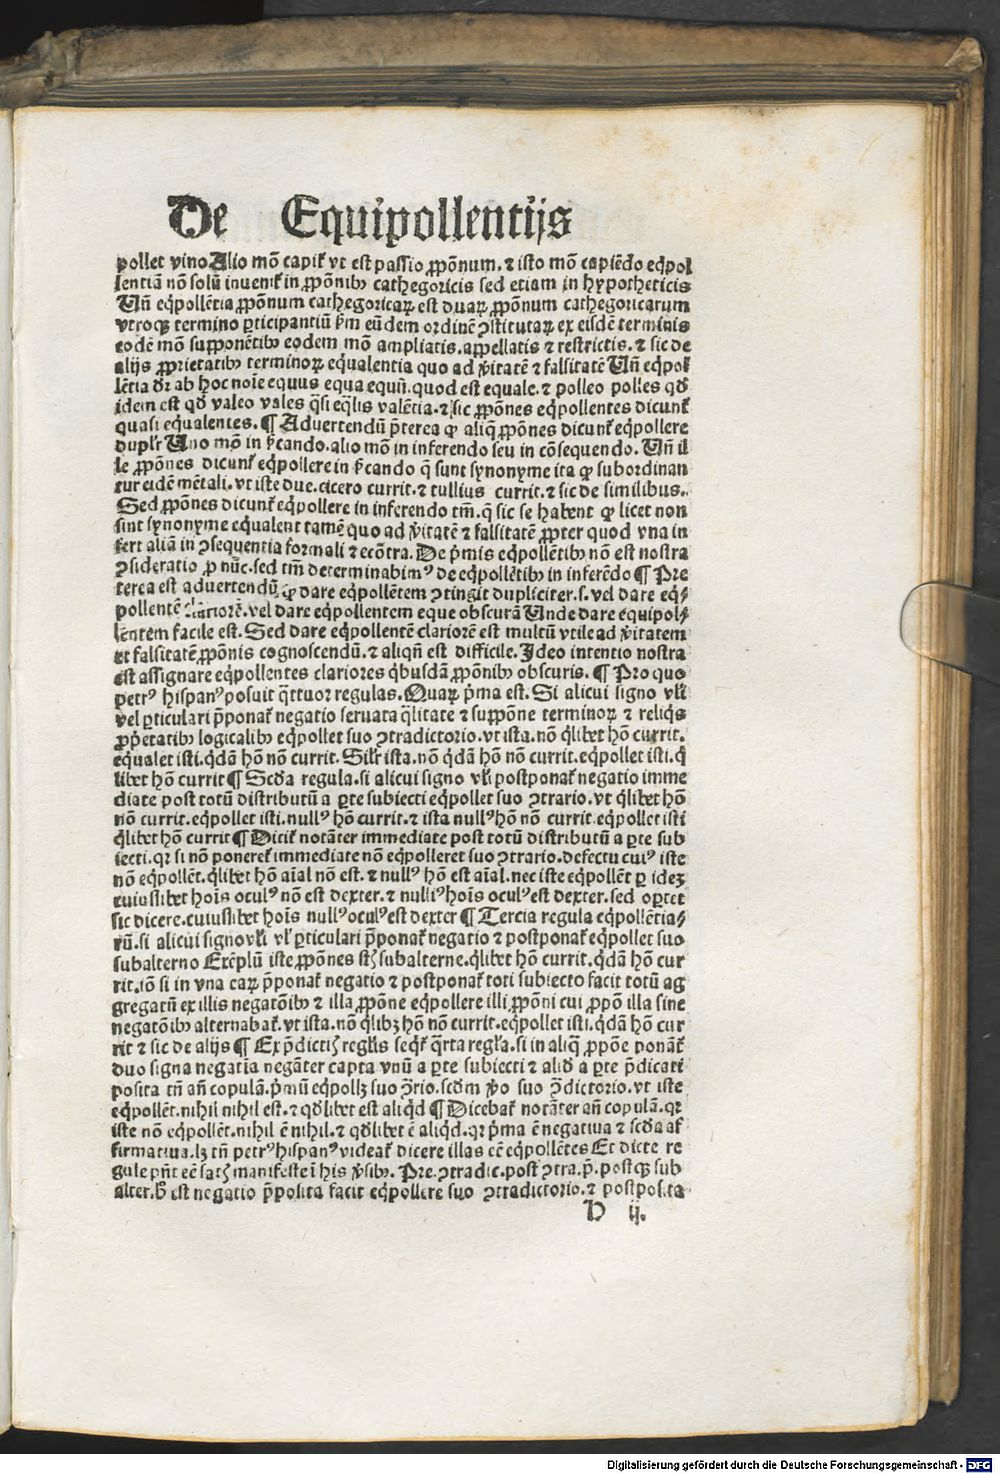 De Equipollentijs
pollet vino Alio mō capiť vt est passio ꝓpōnum. ⁊ isto mō capiēdo eq̄pol
lentiā nō solū inueniť in ꝓpōnibꝰ cathegoricis sed etiam in hypotheticis
Uñ eq̄pollētia ꝓpōnum cathegoricaꝝ est duaꝝ ꝓpōnum cathegoricarum
vtroqꝫ termino ꝑticipantiū ẜm eūdem ordinē ꝯstitutaꝝ ex eisdē terminis
eodē mō supponētibꝰ eodem mō ampliatis. appellatis ⁊ restrictis. ⁊ sic de
alijs ꝓprietatibꝰ terminoꝝ eq̄ualentia quo ad ṽitatē ⁊ falsitatē Uñ eq̄pol
lētia dr̄ ab hoc noīe equus equa equū. quod est equale. ⁊ polleo polles qđ
idem est qđ valeo vales q̄si eq̄lis valētia. ⁊ sic ꝓpōnes eq̄pollentes dicunť
quasi eq̄ualentes. ¶ Aduertendū p̄terea ꝙ aliq̄ ꝓpōnes dicunť eq̄pollere
duplr̄ Uno mō in ẜcando. alio mō in inferendo seu in cōsequendo. Uñ il
le ꝓpōnes dicunť eq̄pollere in ẜcando q̄ sunt synonyme ita ꝙ subordinan
tur eidē mētali. vt iste due. cicero currit. ⁊ tullius currit. ⁊ sic de similibus.
Sed ꝓpōnes dicunť eq̄pollere in inferendo tm̄. q̄ sic se habent ꝙ licet non
sint synonyme equalent tamē quo ad ṽitatē ⁊ falsitatē ꝓpter quod vna in
fert aliā in ꝯsequentia formali ⁊ ecōtra. De p̄mis eq̄pollētibꝰ nō est nostra
ꝯsideratio ꝓ nūc. sed tm̄ determinabimꝰ de eq̄pollētibꝰ in inferēdo ¶ Pre
terea est aduertendū ꝙ dare eq̄pollētem ꝯtingit dupliciter. s. vel dare eq̄⸗
pollentē clariorē. vel dare eq̄pollentem eque obscurā Unde dare equipol⸗
lentem facile est. Sed dare eq̄pollentē clariorē est multū vtile ad ṽitatem
et falsitatē ꝓpōnis cognoscendū. ⁊ aliqñ est difficile. Ideo intentio nostra
est assignare eq̄pollentes clariores q̄busdā ꝓpōnibꝰ obscuris. ¶ Pro quo
petrꝰ hispanꝰ posuit q̄ttuor regulas. Quaꝝ p̄ma est. Si alicui signo vl̄i
vel ꝑticulari p̄ponať negatio seruata q̄litate ⁊ suppōne terminoꝝ ⁊ reliq̄s
ꝓp̄etatibꝰ logicalibꝰ eq̄pollet suo ꝯtradictorio. vt ista. nō q̄libet hō currit.
equalet isti. q̄dā hō nō currit. Silr̄ ista. nō q̄dā hō nō currit. eq̄pollet isti. q̄
libet hō currit ¶ Scđa regula. si alicui signo vl̄i postponať negatio imme
diate post totū distributū a ꝑte subiecti eq̄pollet suo ꝯtrario. vt q̄libet hō
nō currit. eq̄pollet isti. nullꝰ hō currit. ⁊ ista nullꝰ hō nō currit. eq̄pollet isti
q̄libet hō currit ¶ Diciť notāter immediate post totū distributū a ꝑte sub
iecti. qꝛ si nō ponereť immediate nō eq̄polleret suo ꝯtrario. defectu cuiꝰ iste
nō eq̄pollēt. q̄libet hō aīal nō est. ⁊ nullꝰ hō est aīal. nec iste eq̄pollēt ꝑ ideꝫ
cuiuslibet hoīs oculꝰ nō est dexter. ⁊ nulliꝰ hoīs oculꝰ est dexter. sed oꝑtet
sic dicere. cuiuslibet hoīs nullꝰ oculꝰ est dexter ¶ Tercia regula eq̄pollētia⸗
rū. si alicui signo vl̄i vl̓ ꝑticulari p̄ponať negatio ⁊ postponať eq̄pollet suo
subalterno Exēplū iste ꝓpōnes sť subalterne. q̄libet hō currit. q̄dā hō cur
rit. iō si in vna caꝝ p̄ponať negatio ⁊ postponať toti subiecto facit totū ag
gregatū ex illis negatōibꝰ ⁊ illa ꝓpōne eq̄pollere illi ꝓpōni cui ꝓpō illa sine
negatōibꝰ alternabať. vt ista. nō q̄libꝫ hō nō currit. eq̄pollet isti. q̄dā hō cur
rit ⁊ sic de alijs ¶ Ex p̄dictꝭ regl̓is seq̄ť q̄rta regl̓a. si in aliq̄ ꝓpōe ponāť
duo signa negatīa negāter capta vnū a ꝑte subiecti ⁊ aliđ a ꝑte p̄dicati
posita tñ añ copulā. p̄mū eq̄pollꝫ suo ꝯ̄rio. scđm ṽo suo ꝯ̄dictorio. vt iste
eq̄pollēt. nihil nihil est. ⁊ qđlibet est aliq̄d ¶ Dicebať notāter añ copulā. qꝛ
iste nō eq̄pollēt. nihil ē nihil. ⁊ qđlibet ē aliq̄d. qꝛ p̄ma ē negatiua ⁊ scđa af
firmatiua. lꝫ tñ petrꝰ hispanꝰ videať dicere illas eē eq̄pollētes Et dicte re
gule pñt eē satꝭ manifeste ī his ṽsibꝰ. Pre. ꝯtradic. post ꝯtra. p̄. postqꝫ sub
alter. hꝰ est negatio p̄posita facit eq̄pollere suo ꝯtradictorio. ⁊ postposita
D ij.
Digitalisierung gefördert durch die Deutsche Forschungsgemeinschaft - DFG